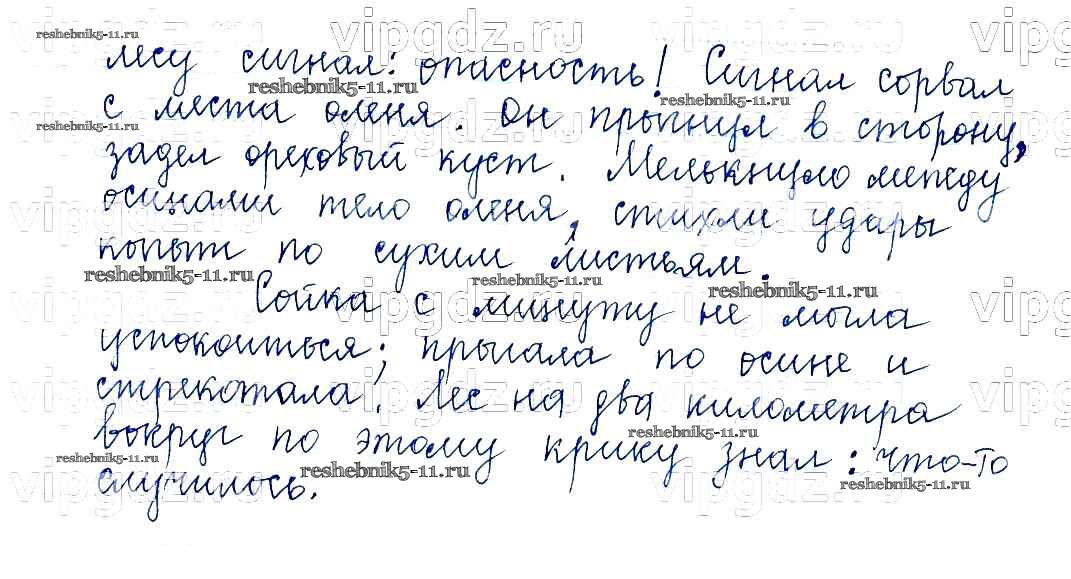 лесу сигнал: опасность! Сигнал сорвал
с места оленя. Он прыгнул в сторону,
задел ореховый куст. Мелькнуло между
осинами тело оленя, стихли удары
копыт по сухим листьям.
Сойка с минуту не могла
успокоиться; прыгала по осине и
стрекотала. Лес на два километра
вокруг по этому крику знал: что-то
случилось.